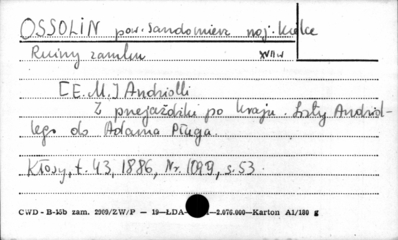 OSSOLIN pow. Sandomierz woj. Kielce
Ruiny zamku XVII w
[E.M.] Andriolli
Z przejażdżki po kraju. Listy Andriol-
lego do Adama Pługa.
Kłosy, t. 43, 1886, Nr. 1099, s. 53.
CWD - B-15b zam. 2909/ZW/P — 19—ŁDA- —2.070.000—Karton A1/180 g